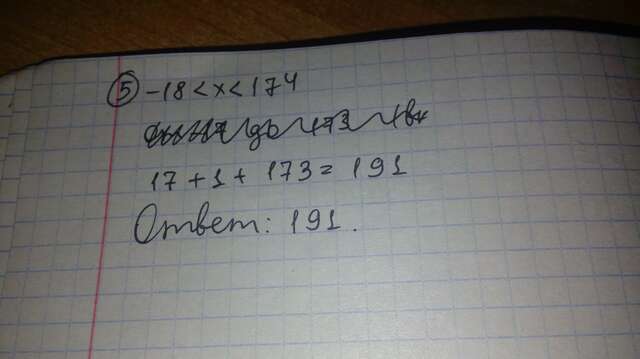 ⑤ -18 < x < 174
17 + 1 + 173 = 191
Ответ: 191.